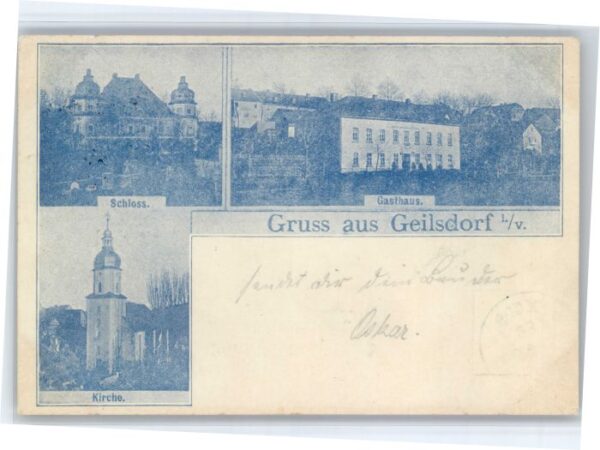 Schloss.
Gasthaus.
Gruss aus Geilsdorf i./v.
sendet dir dein Bruder
Oskar.
Kirche.